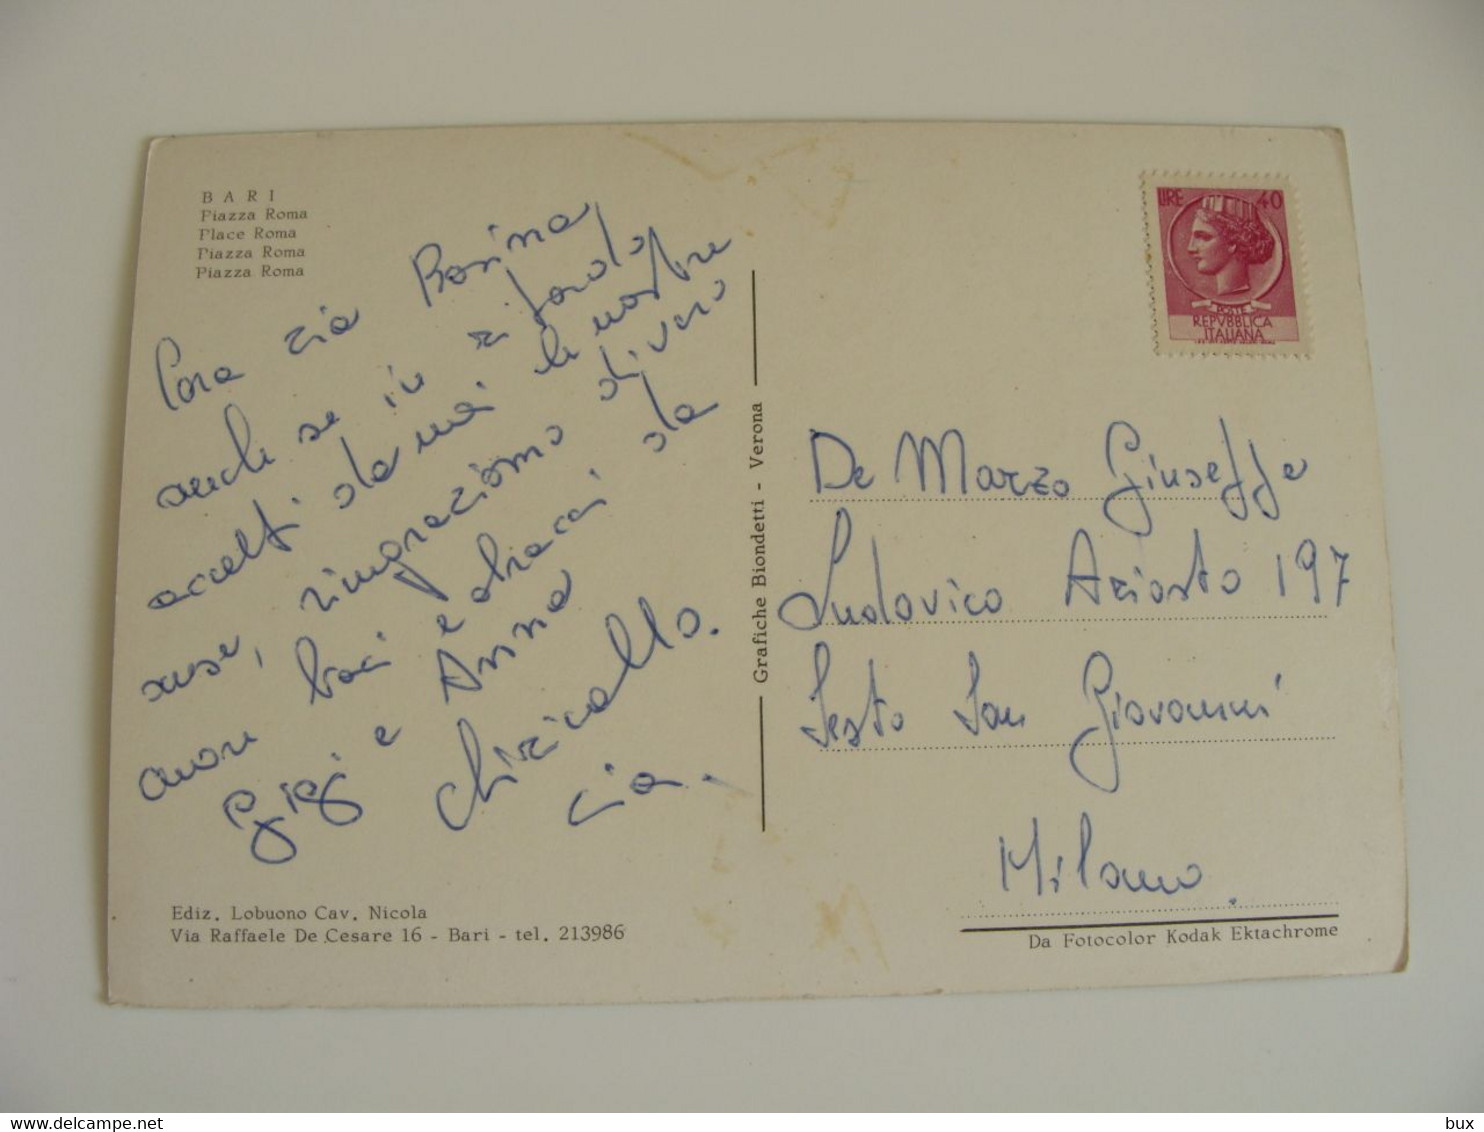 BARI
Piazza Roma
Place Roma
Piazza Roma
Piazza Roma
Cara zia Rosina,
anche se in ritardo
accetti da noi le nostre
scuse, ringraziamo di vero
cuore baci e abracci da
Gigi e Anna
Chiricallo.
Cia.
Grafiche Biondetti - Verona
LIRE 40
POSTE
REPVBBLICA
ITALIANA
De Marzo Giuseppe
Ludovico Ariosto 197
Sesto San Giovanni
Milano
Ediz. Lobuono Cav. Nicola
Via Raffaele De Cesare 16 - Bari - tel. 213986
Da Fotocolor Kodak Ektachrome
www.delcampe.net
bux